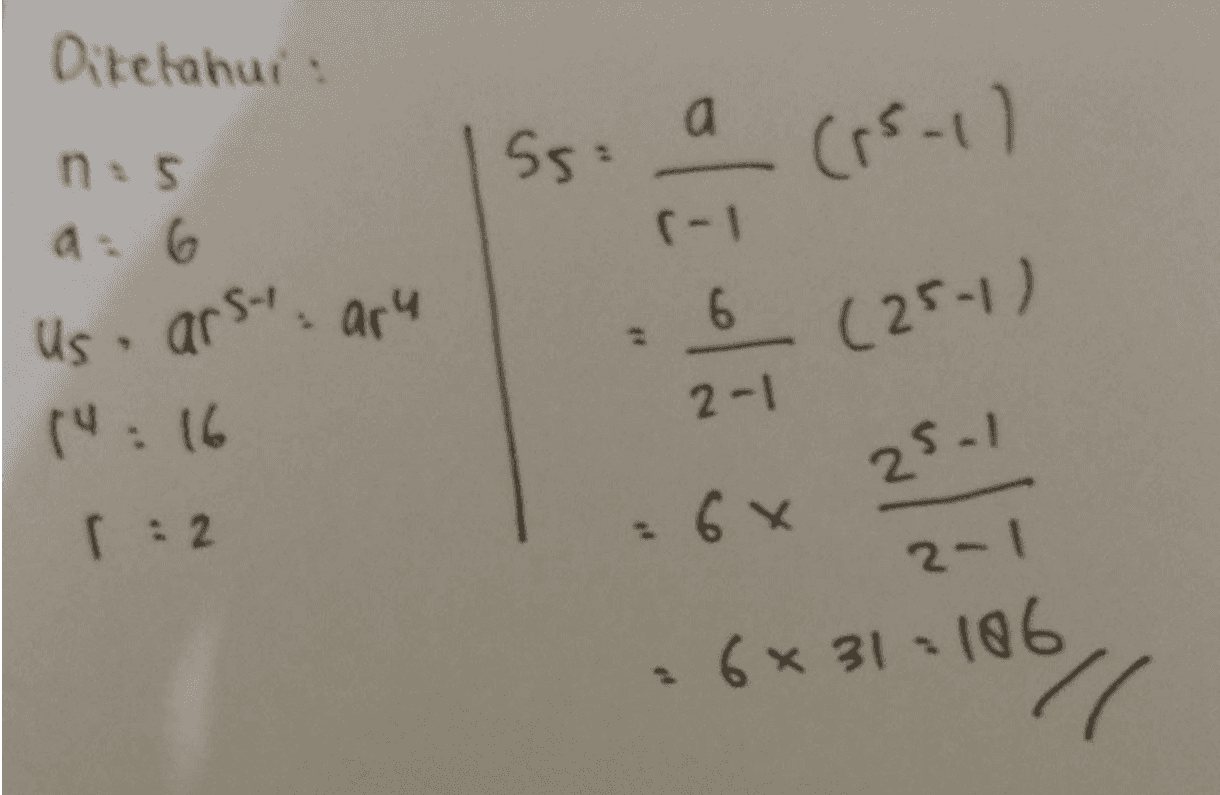 Diketahui :
n = 5
a = 6
U₅ = ar⁵⁻¹ = ar⁴
r⁴ = 16
r = 2
S₅ = a/(r-1) (r⁵-1)
= 6/(2-1) (2⁵-1)
= 6 × (2⁵-1)/(2-1)
= 6 × 31 = 186 //